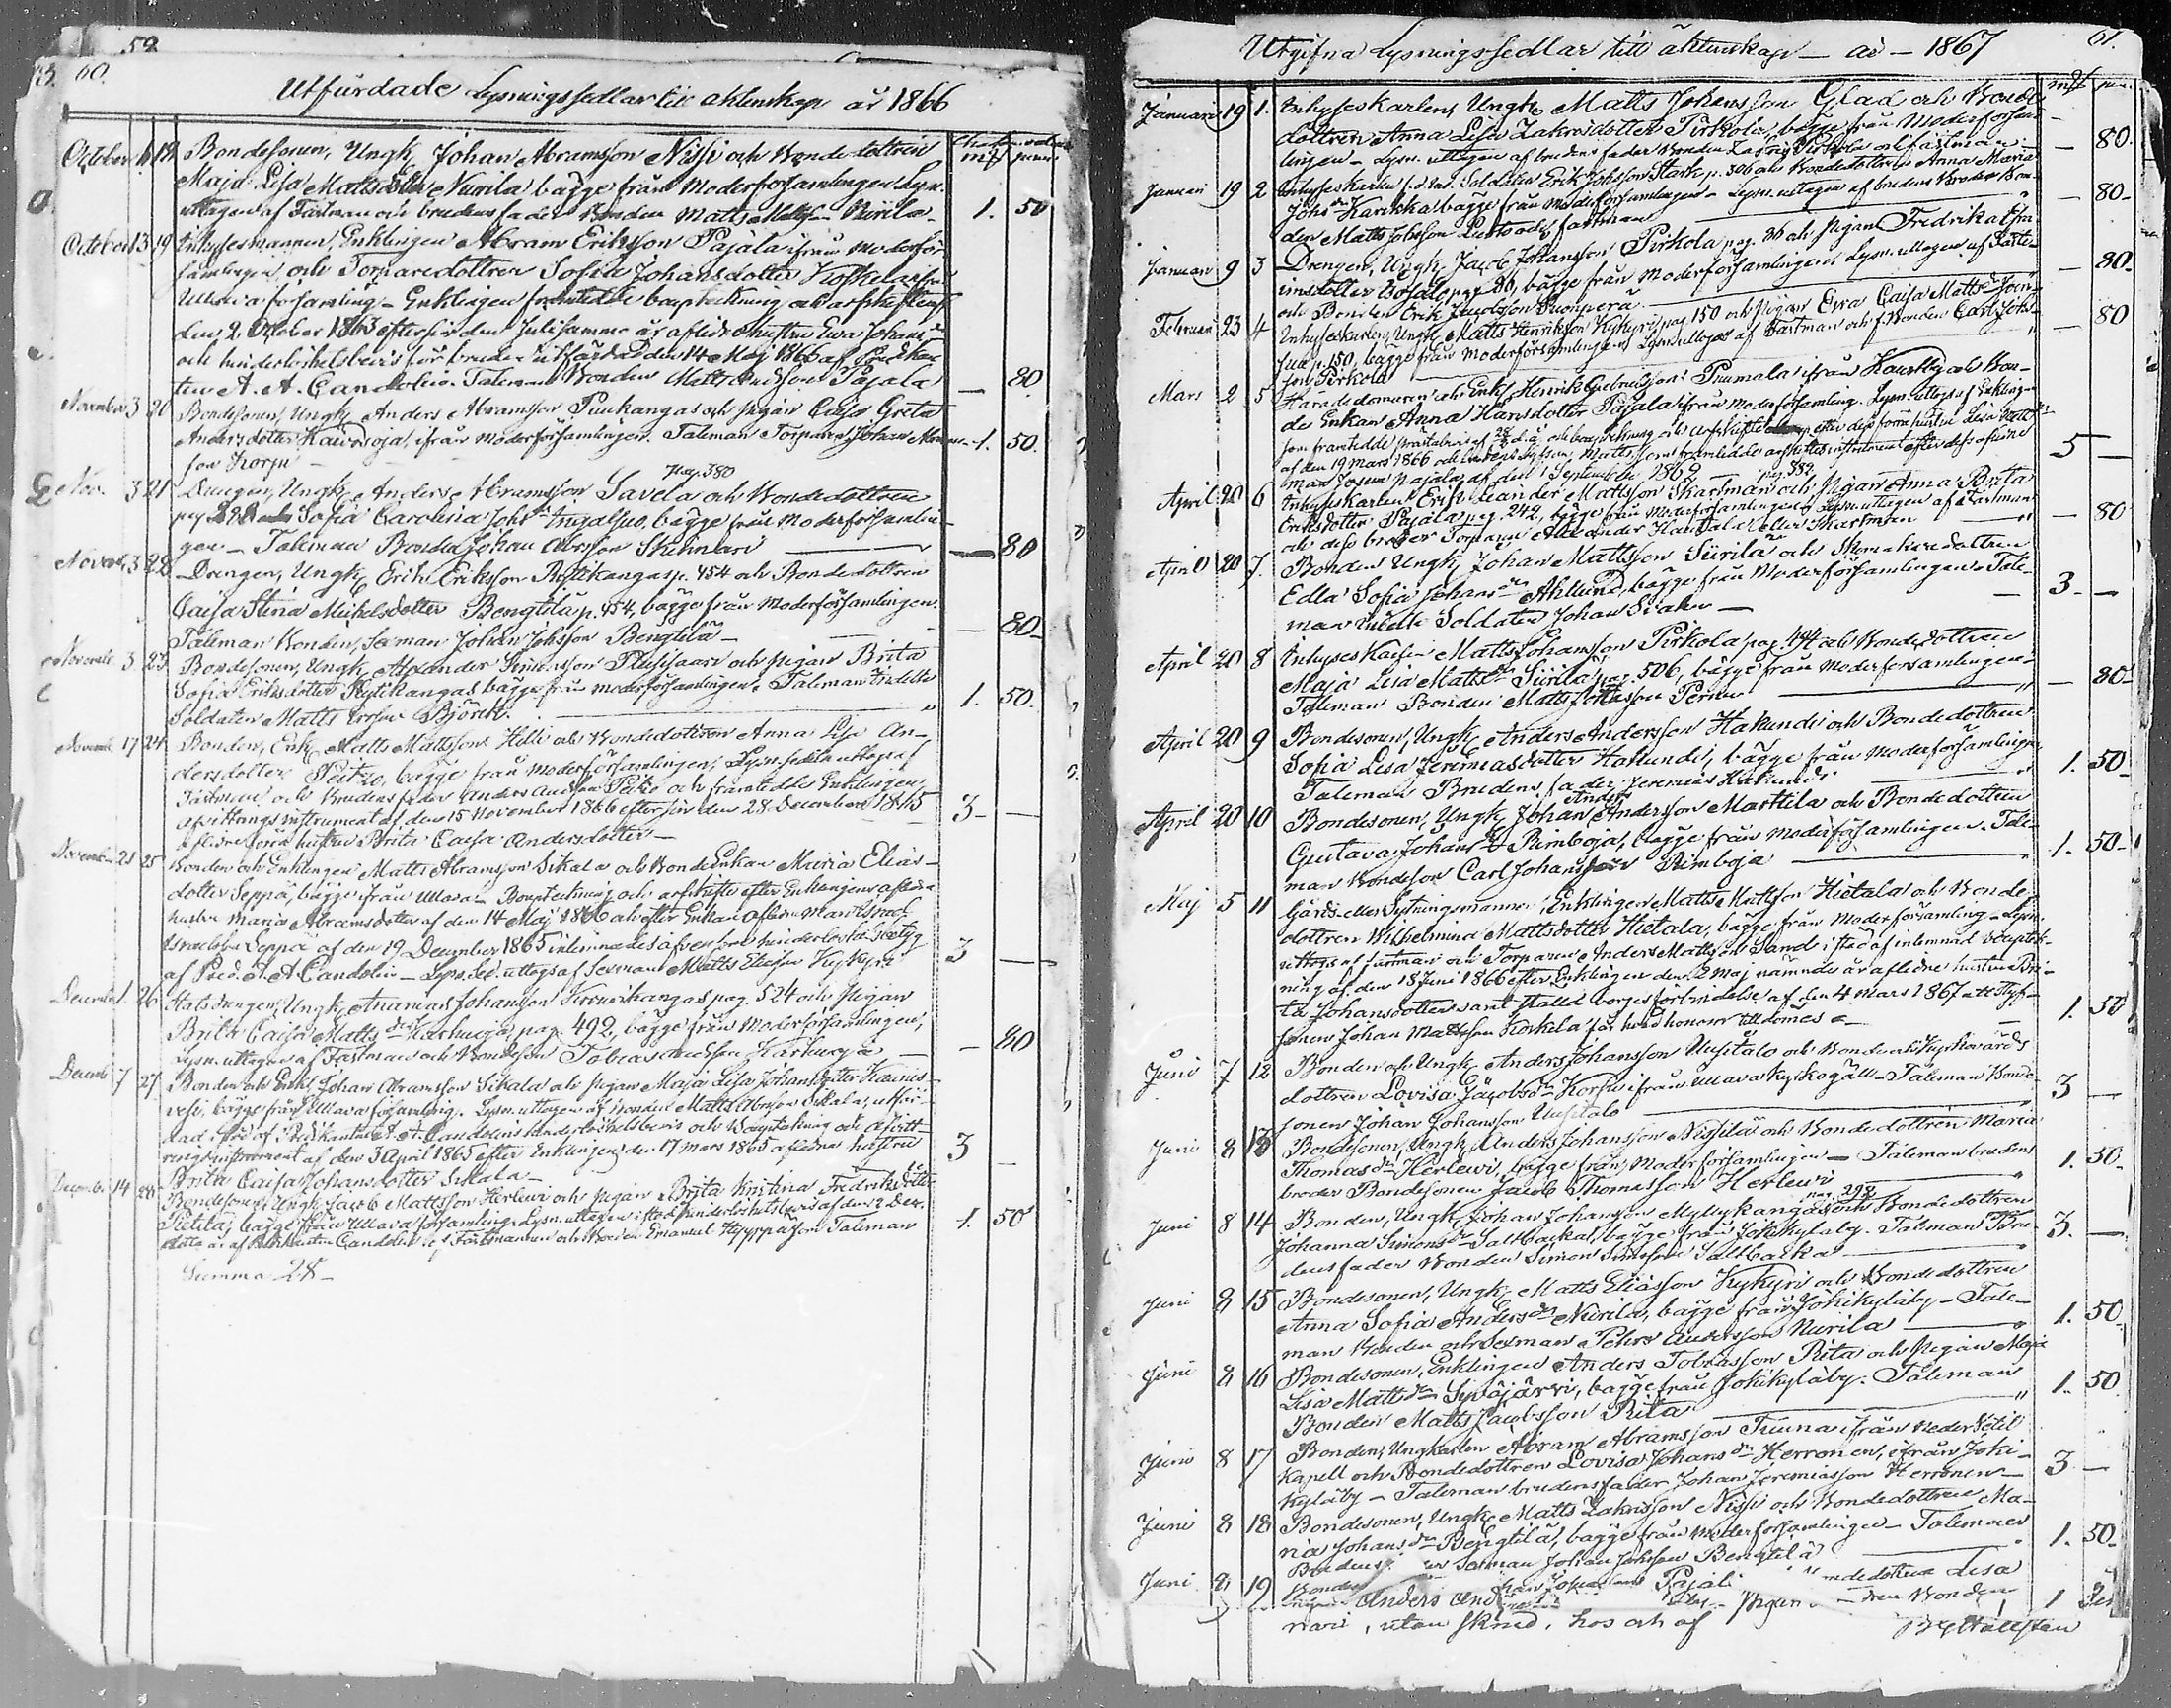 59
60.
Utfärdade Lysningssedlar till äktenskap år 1866
mk penni
October 6 18 Bondesonen, Ungk. Johan Abramsson Nissi och Bondedottren
Maja Lisa Mattsdotter Nurila bägge från Moderförsamlingen Lysn.
uttagen af Fästman och brudens fader Bonden Matts Mattsson Nurila 1. 50
October 13 19 Inhysesmannen, Enklingen Abram Eriksson Pajala ifrån moderför-
samlingen och Torparedottren Sofia Johansdotter Koskela från
Ullava församling - Enklingen framtedde bouptekning och arfskifte af
den 2 October 1863 efter sin den Juli samma år aflidne hustru Ewa Johansdr
och hinderlöshetsbevis för bruden utfärdad den 14 Maj 1866 af Predikan-
ten A. A. Candolin. Taleman Bonden Matts Andsson Pajala — 80
November 3 20 Bondesonen, Ungk. Anders Abramsson Puukangas och pigan Caisa Greta
Andersdotter Kaivosoja, ifrån moderförsamlingen. Taleman Torparen Johan
son Korpi 1. 50.
Nov. 3 21 Drengen, Ungk. Anders Abramsson Savela pag. 380 och Bondedottren
Sofia Carolina Johsdr Ingalsuo, bägge från Moderförsamlin-
gen - Taleman Bonden Johan Abrsson — 80
Novemb. 3 22 Drengen, Ungk. Erik Eriksson Rytikangas p. 454 och Bondedottren
Caisa Stina Michelsdotter Bengtila p. 454, bägge från Moderförsamlingen.
Taleman Bonden, Sexman Johan Johsson Bengtilä — 80
Novemb. 3 23 Bondesonen, Ungk. Alexander Simonsson Plusisaari och pigan Brita
Sofia Eriksdotter Rytikangas bägge från moderförsamlingen. Taleman
Soldaten Matts Ersson Björk 1. 50.
Novemb. 17 24 Bonden, Enk. Matts Mattsson Hilli och Bondedottren Anna Lisa An-
dersdotter Peitzo, bägge från moderförsamlingen; Lysn.sedeln uttogs af
Fästman och Brudens fader Anders Andsson Peitzo och framtedde Enklingen
afvittringsinstrument af den 15 November 1866 efter sin den 28 December 1845
aflidne förra hustru Brita Caisa Andersdotter 3 —
November 21 25 Bonden och Enklingen Matts Abramsson Sikala och Bonde Enkan Maria Elias-
dotter Seppä, bägge ifrån Ullava - Bouptekning och arfskifte efter Enklingens aflidna
hustru Maria Abramsdotter af den 14 Maj 1866 och efter Enkans aflidne man Israel
Israelsson Seppä af den 19 December 1865 inlemnades äfvensom hinderlöshetsbetyg
af Pred. A. A. Candolin - Lysn.sed. uttogs af Sexman Matts Eliasson Kykyri 3 —
December 1 26 Statsdrengen, Ungk. Ananias Johansson Kronikangas pag. 524 och Pigan
Brita Caisa Mattsdr Karhuoja, pag. 492, bägge från Moderförsamlingen,
Lysn. uttagen af Fästman och Bondeson Tobias Andsson Karhuoja — 80
Decemb. 7 27 Bonden och Enkl. Johan Abramsson Sikala och pigan Maja Lisa Johansdotter Haunis-
vesi, bägge från Ullava församling. Lysn. uttagen af Bonden Matts Abrsson Sikala; utfär-
dad af Predikanten A. A. Candolins hinderlöshetsbevis och Bouptekning och afvitt-
ringsinstrument af den 3 April 1865 efter Enklingens den 17 Mars 1865 aflidna hustru
Brita Caisa Johansdotter Sikala 3 —
December 14 28 Bondesonen, Ungk. Jacob Mattsson Herlevi och pigan Brita Kristina Fredriksdotter
bägge från Ullava församling. Lysn. uttagen hinderlöshetsbevis af den 2 Dec.
detta år af Predikanten Candolin af Fästmannen och Bonden Emanuel Hyyppä som Taleman 1. 50
Summa 28
61.
Utgifna Lysningssedlar till äktenskap - år - 1867
mk pen.
Januari 19 1. Inhyseskarlen, Ungk. Matts Johansson Glad och Bonde-
dottren Anna Lisa Zakrisdotter Pirkola, bägge från Moderförsam-
lingen - Lysn. uttagen af brudens fader Bonden Zakris Pirkola och fästman — 80.
Januari 19 2 Inhyseskarlen f.d. Soldaten Erik Johsson Stark p. 306 och Bondedottren Anna Maria
Johsdr Karikka bägge från Moderförsamlingen - Lysn. uttagen af brudens Broder Bon-
den Matts Johsson och fästman — 80.
Januari 9 3 Drengen, Ungk. Jacob Johansson Pirkola pag. 36 och Pigan Fredrika
bägge från Moderförsamlingen, Lysn. uttagen af Fäste-
och Bonden Erik Jacobsson Suonperä — 80.
Februari 23 4 Inhyseskarlen, Ungk. Matts Henriksson Kykyri, pag. 150 och Pigan Eva Caisa Mattsdr Joen-
suu p. 150, bägge från Moderförsamlingen, Lysn. uttogs af Fästman och f. Bonden Carl Johs-
son Pirkola — 80
Mars 2 5 Häradsdomaren och Enkl. Henrik Gabrielsson Puumala ifrån Kaustby och Bon-
de Enkan Anna Hansdotter Pajala ifrån Moderförsamling. Lysn. uttogs af Enklingen
som framtedde prästabevis af och bouptekning och arfskifte efter dess förra hustru Lisa
af den 19 Mars 1866
man Josua Pajala af den 1 September 1869 5 —
April 20 6 Inhyseskarlen Erik Leander Mattsson Skartman pag. 382 och Pigan Anna Brita
Eriksdotter Pajala pag. 242, bägge från Moderförsamlingen, Lysn. uttagen af Fästman
och dess broder Torparen Alexander Hautala eller Skartman — 80
April 20 7. Bonden Ungk. Johan Mattsson Siirilä och Skomakaredottren
Edla Sofia Johansdr Ahllund, bägge från Moderförsamlingen. Tale-
man Soldaten Johan 3 —
April 20 8 Inhyses Karlen Matts Johansson Pirkola pag. 494 och Bondedottren
Maja Lisa Mattsdr Siirilä pag. 506, bägge från Moderförsamlingen.
Taleman Bonden Matts — 80
April 20 9 Bondesonen, Ungk. Anders Andersson Hakunde och Bondedottren
Sofia Lisa Jeremiasdotter Hakunde, bägge från Moderförsamlingen,
Taleman Brudens fader Jeremias Hakunde 1. 50
April 20 10 Bondesonen, Ungk. Johan Anders Andersson Marttila och Bondedottren
Gustava Johansdr Rimboja, bägge från moderförsamlingen. Tale-
man Bondeson Carl Johansson Rimboja 1. 50
Maj 5 11 Gårds- eller Sytningsmannen, Enklingen Matts Mattsson Hietala och Bonde-
dottren Wilhelmina Mattsdotter Hietala, bägge från Moderförsamling - Lysn.
uttogs af fästman och Torparen Anders Mattsson Sand i stöd af inlemnad Bouptek-
ning af den 18 Juni 1866 efter Enklingen den 2 Maj nämnde år aflidne hustru Bri-
ta Johansdotter samt stälde borgesförbindelse af den 4 Mars 1867 att Styf-
sonen Johan Mattsson Koskela får hvad honom tilldömes 1. 50
Juni 7 12 Bonden och Ungk. Anders Johansson Uusitalo och Bonde och Kyrkovärds
dottren Lovisa Jacobsdr Korpi ifrån Ullava Kyrkogäll - Taleman Bonde
sonen Johan Johansson Uusitalo 3 —
Juni 8 13 Bondesonen, Ungk. Anders Johansson Nissilä och Bondedottren Maria
Thomasdr Herlevi, bägge från Moderförsamlingen - Taleman brudens
broder Bondesonen Jacob Thomasson Herlevi 1. 50.
Juni 8 14 Bonden, Ungk. Johan Johansson Myllykangas pag. 298 och Bondedottren
Johanna Simonsdr Saltbacka, bägge från Jokikyläby. Taleman Bru-
dens fader Bonden Simon Simsson Saltbacka 3. —
Juni 8 15 Bondesonen, Ungk. Matts Eliasson Kykyri och Bondedottren
Anna Sofia Andersdr Nurila, bägge från Jokikyläby - Tale-
man Bonden och Sexman Pehr Andersson Nurila 1. 50
Juni 8 16 Bondesonen, Enklingen Anders Tobiasson Rita och Pigan Maja
Lisa Mattsdr Syväjärvi, bägge från Jokikyläby. Taleman
Bonden Matts Jacobsson Rita 1. 50
Juni 8 17 Bonden, Ungkarlen Abram Abramsson Tuuna ifrån Neder Vetil
Kapell och Bondedottren Lovisa Johansdr Herronen, ifrån Joki-
kyläby - Taleman brudens fader Johan Jeremiasson Herronen 3 —
Juni 8 18 Bondesonen, Ungk. Matts Zakrisson Nissi och Bondedottren Ma-
ria Johansdr Bengtilä, bägge från Moderförsamlingen - Taleman
Brudens Sexman Johan Johsson Bengtilä 1. 50
Juni 8 19 Bonde Pajal ndedottren Lisa
Anders And Bonden 1
utan skrud, hos och af